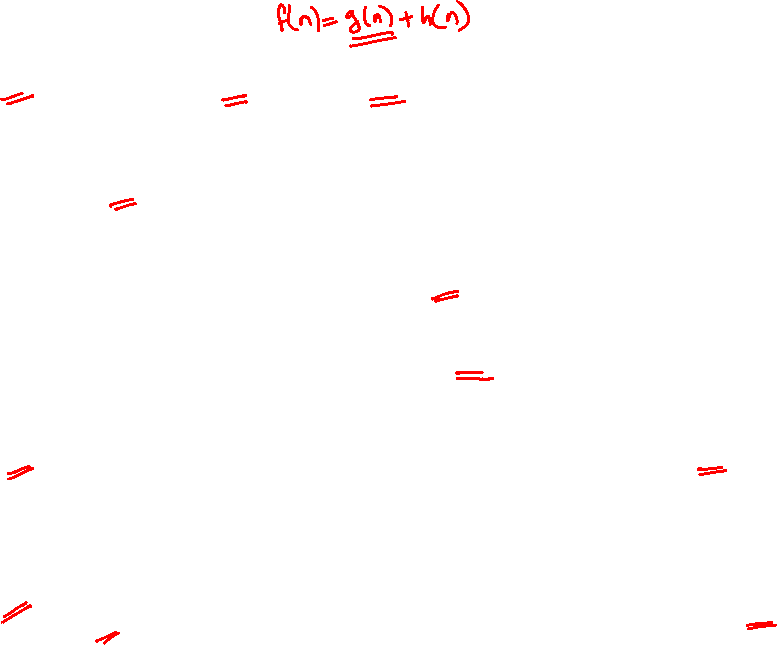 f(n) = g(n) + h(n)